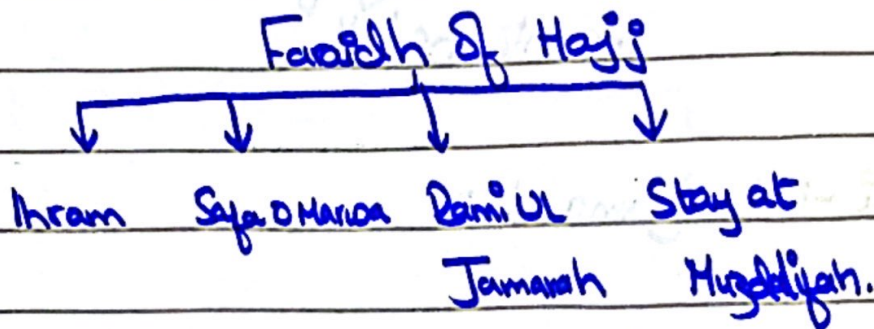 Faraidh Of Hajj
Ihram Safa O Marwa Rami UL Stay at
Jamarah Muzdalifah.